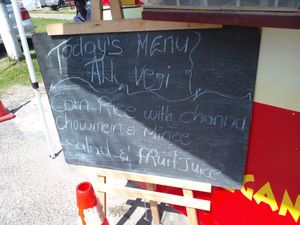 Today's MENU
All vegi
Corn Rice with channa
Chowmein &
Salad & fRuit Juice
GAN